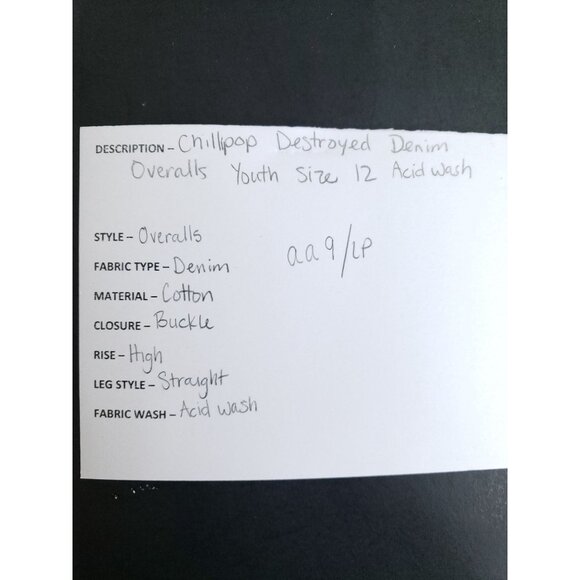 DESCRIPTION – Chillipop Destroyed Denim
Overalls Youth Size 12 Acid Wash
STYLE – Overalls
FABRIC TYPE – Denim
aa9/LP
MATERIAL – Cotton
CLOSURE – Buckle
RISE – High
LEG STYLE – Straight
FABRIC WASH – Acid Wash